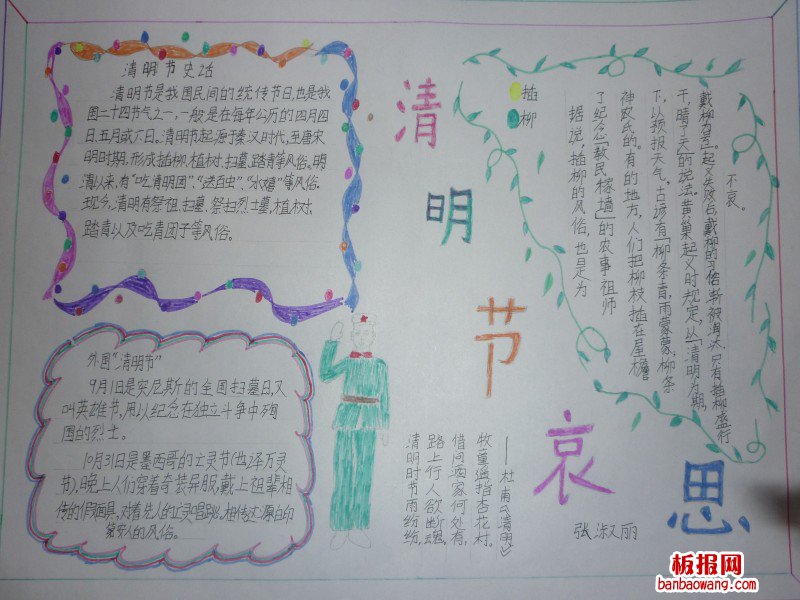 清明节史话
清明节是我国民间的统传节日,也是我
国二十四节气之一,一般是在每年公历的四月四
日、五月或六日。清明节起源于秦汉时代,至唐宋
明时期,形成插柳、植树、扫墓、踏青等风俗。明
清以来,有“吃清明团”、“送百虫”、“水嬉”等风俗。
现今,清明有祭祖、扫墓、祭扫烈士墓,植树,
踏青以及吃青团子等风俗。
外国“清明节”
9月1日是突尼斯的全国扫墓日,又
叫英雄节,用以纪念在独立斗争中殉
国的烈士。
10月31日是墨西哥的亡灵节(也译万灵
节),晚上人们穿着奇装异服,戴上祖辈相
传的假面具,对着先人的亡灵唱跳。相传这源自印
第安人的风俗。
清明节哀思
插柳
据说,插柳的风俗,也是为
了纪念「教民稼墙」的农事祖师
神农氏的。有的地方,人们把柳枝插在屋檐
下,以预报天气,古谚有「柳条青,雨蒙蒙;柳条
干,晴了天」的说法。黄巢起义时规定,以「清明为期,
戴柳为号」。起义失败后,戴柳的习俗渐被淘汰,只有插柳盛行
不衰。
清明时节雨纷纷,
路上行人欲断魂。
借问酒家何处有,
牧童遥指杏花村。
——杜甫《清明》
张淑丽
板报网
banbaowang.com